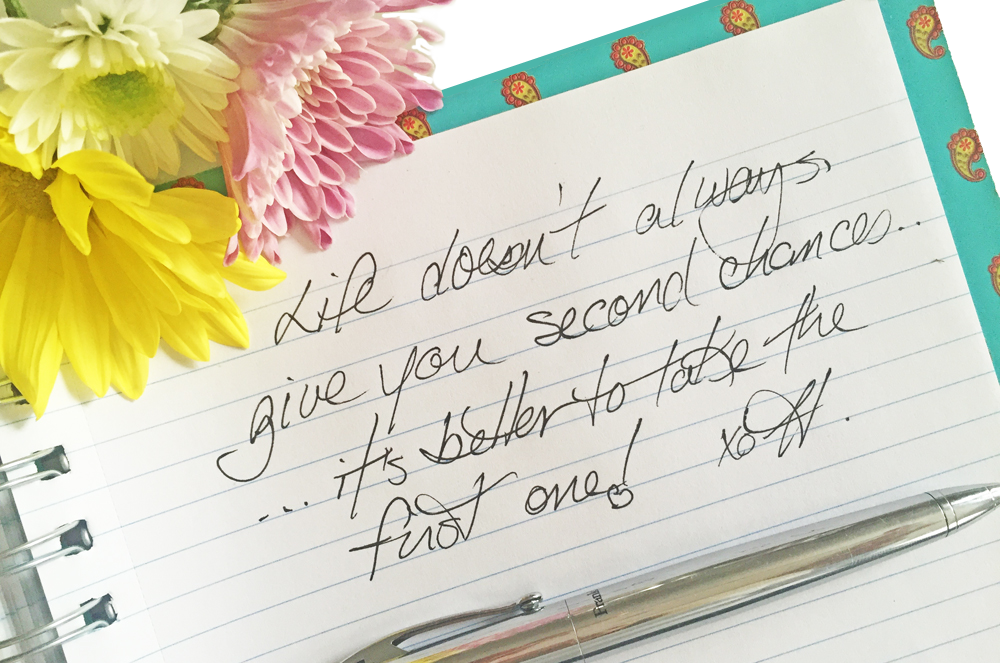 Life doesn't always
give you second chances..
... it's better to take the
first one!